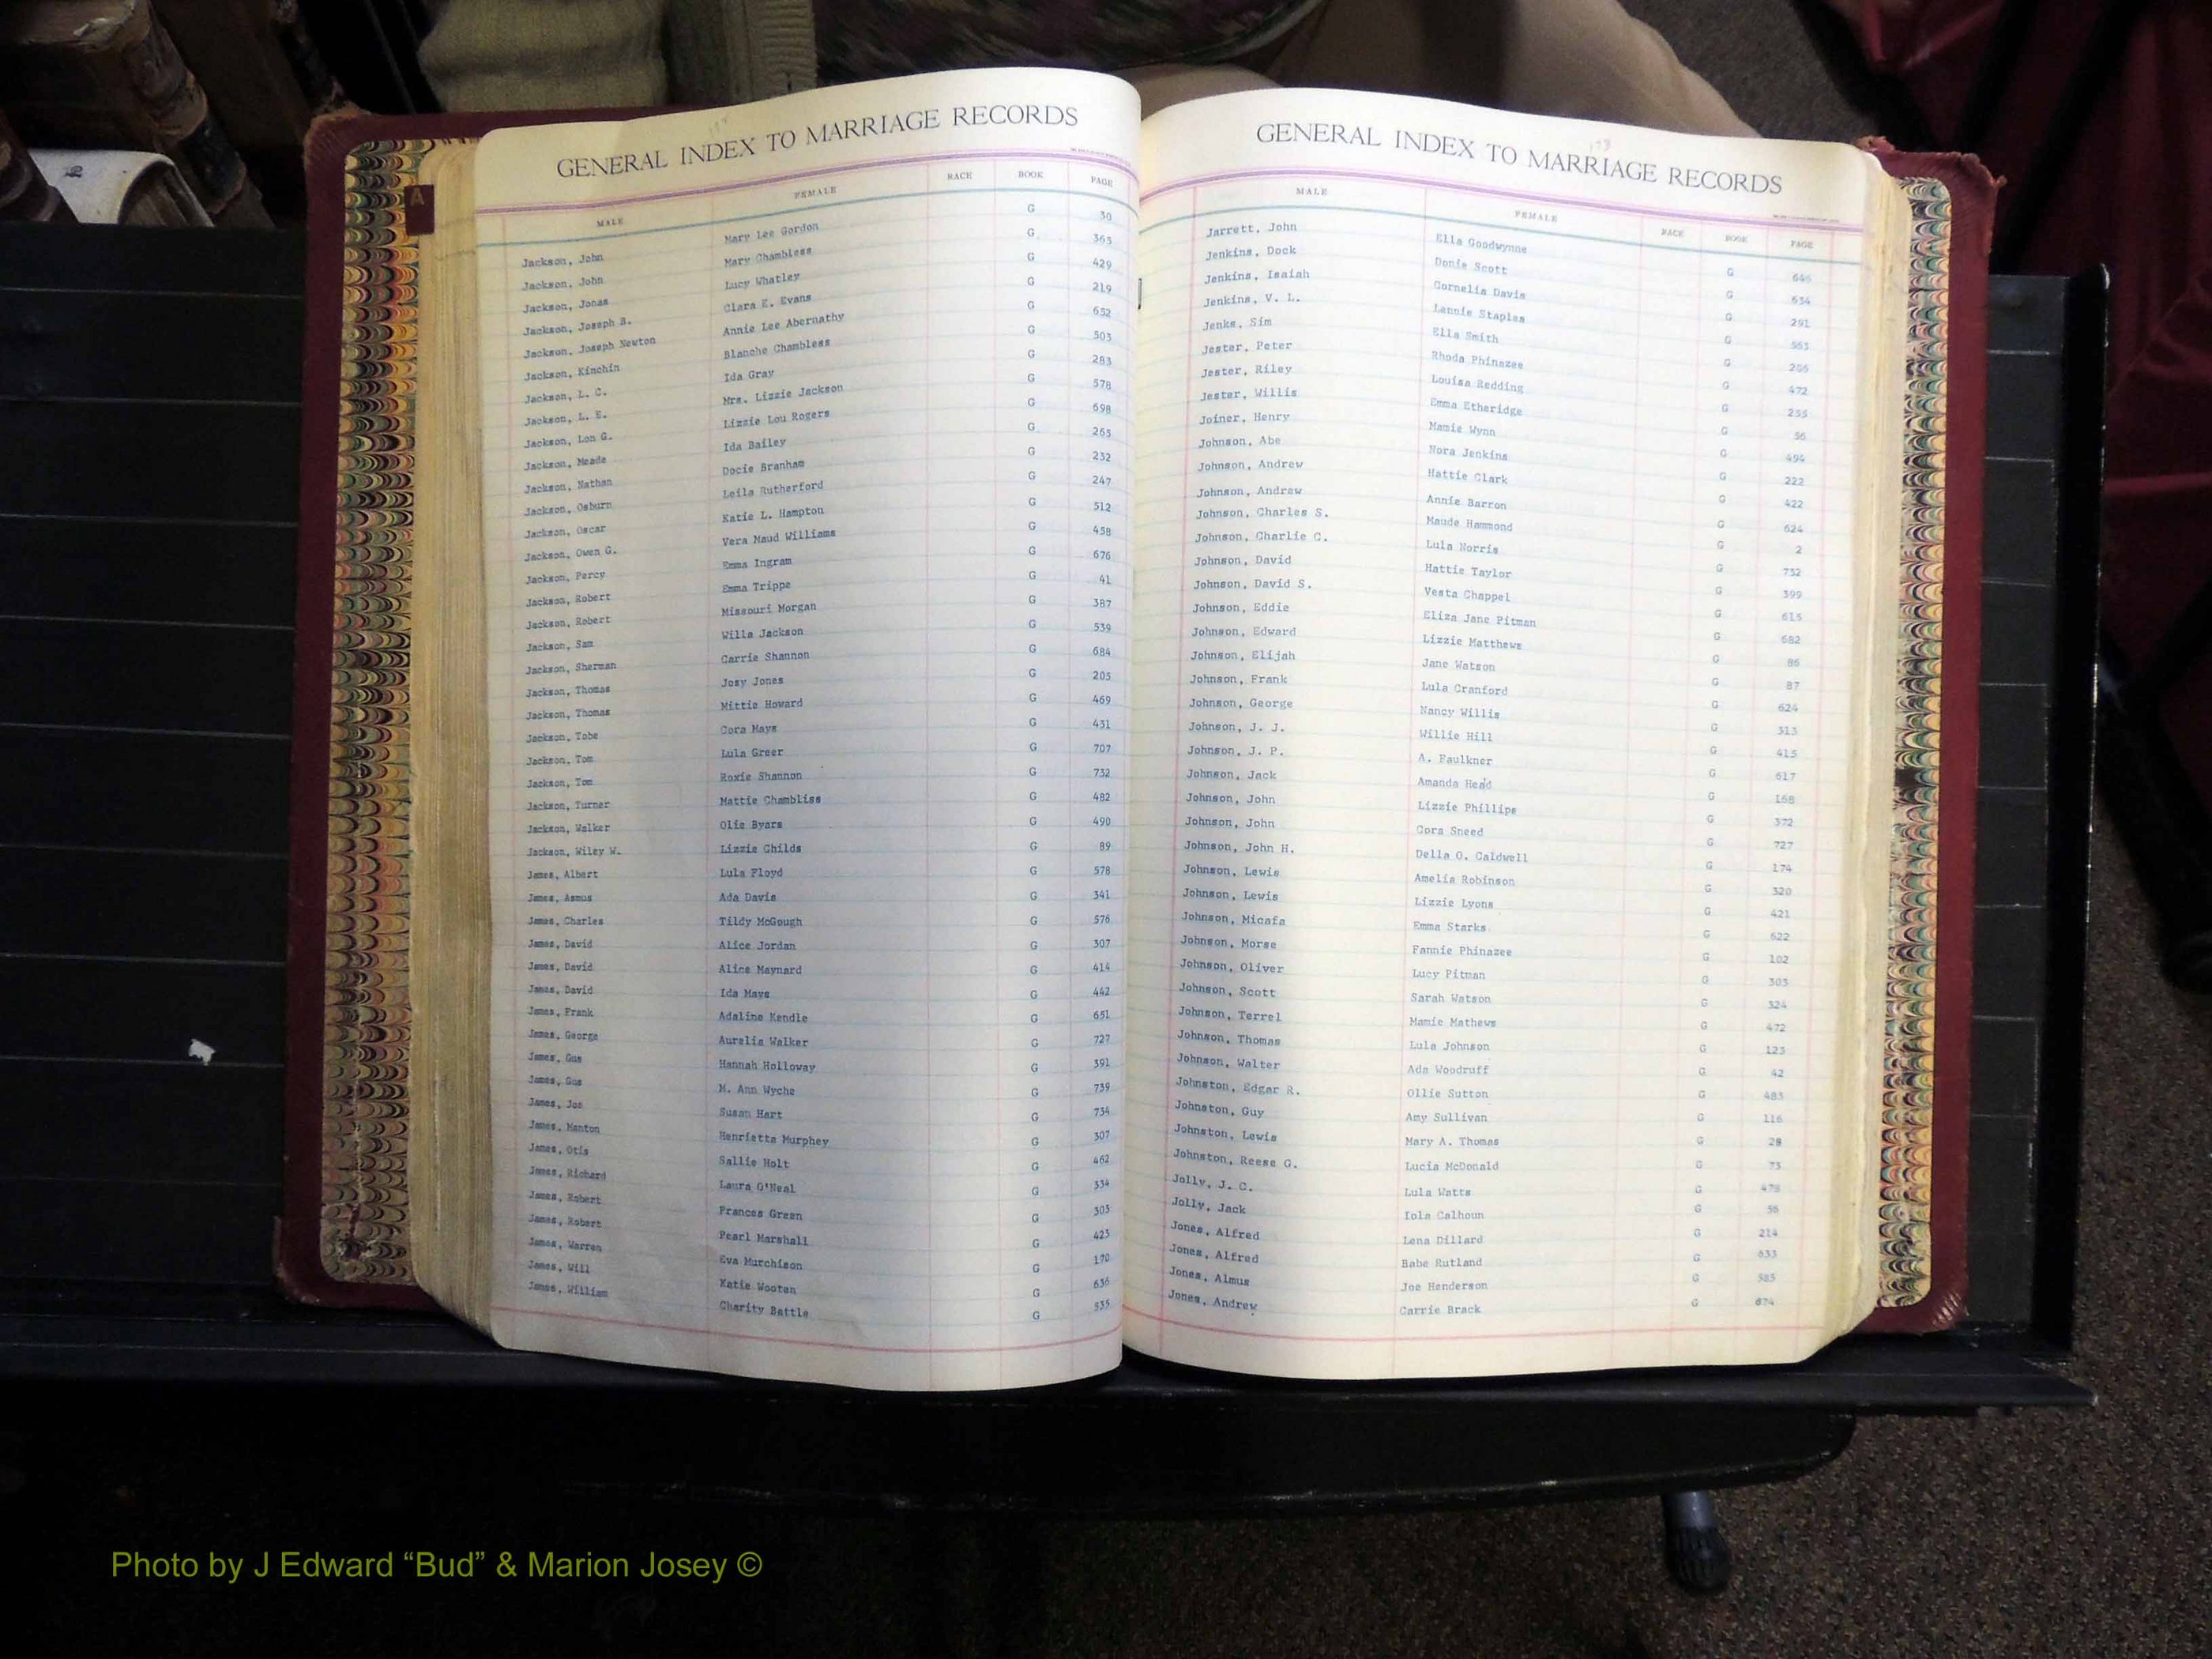 GENERAL INDEX TO MARRIAGE RECORDS
MALE FEMALE RACE BOOK PAGE
Jackson, John Mary Lee Gordon G 30
Jackson, John Mary Chambless G 365
Jackson, Jonas Lucy Whatley G 429
Jackson, Joseph B. Clara E. Evans G 219
Jackson, Joseph Newton Annie Lee Abernathy G 652
Jackson, Kinchin Blanche Chambless G 503
Jackson, L. C. Ida Gray G 283
Jackson, L. E. Mrs. Lizzie Jackson G 578
Jackson, Lon G. Lizzie Lou Rogers G 698
Jackson, Meade Ida Bailey G 265
Jackson, Nathan Docie Branham G 232
Jackson, Osburn Leila Rutherford G 247
Jackson, Oscar Katie L. Hampton G 512
Jackson, Owen G. Vera Maud Williams G 458
Jackson, Percy Emma Ingram G 676
Jackson, Robert Emma Trippe G 41
Jackson, Robert Missouri Morgan G 387
Jackson, Sam Willa Jackson G 539
Jackson, Sherman Carrie Shannon G 684
Jackson, Thomas Josy Jones G 205
Jackson, Thomas Mittie Howard G 469
Jackson, Tobe Cora Mays G 431
Jackson, Tom Lula Greer G 707
Jackson, Tom Roxie Shannon G 732
Jackson, Turner Mattie Chambliss G 482
Jackson, Walker Olie Byars G 490
Jackson, Wiley W. Lizzie Childs G 89
James, Albert Lula Floyd G 578
James, Asmus Ada Davis G 341
James, Charles Tildy McGough G 576
James, David Alice Jordan G 307
James, David Alice Maynard G 414
James, David Ida Mays G 442
James, Frank Adaline Kendle G 651
James, George Aurelia Walker G 727
James, Gus Hannah Holloway G 391
James, Gus M. Ann Wyche G 739
James, Joe Susan Hart G 734
James, Manton Henrietta Murphey G 307
James, Otis Sallie Holt G 462
James, Richard Laura O'Neal G 334
James, Robert Frances Green G 303
James, Robert Pearl Marshall G 423
James, Warren Eva Murchison G 170
James, Will Katie Wooten G 636
James, William Charity Battle G 535
GENERAL INDEX TO MARRIAGE RECORDS
MALE FEMALE RACE BOOK PAGE
Jarrett, John Ella Goodwynne G 646
Jenkins, Dock Donie Scott G 634
Jenkins, Isaiah Cornelia Davis G 291
Jenkins, V. L. Lannie Staples G 563
Jenks, Sim Ella Smith G 206
Jester, Peter Rhoda Phinazee G 472
Jester, Riley Louisa Redding G 255
Jester, Willis Emma Etheridge G 56
Joiner, Henry Mamie Wynn G 494
Johnson, Abe Nora Jenkins G 222
Johnson, Andrew Hattie Clark G 422
Johnson, Andrew Annie Barron G 624
Johnson, Charles S. Maude Hammond G 2
Johnson, Charlie C. Lula Norris G 732
Johnson, David Hattie Taylor G 399
Johnson, David S. Vesta Chappel G 615
Johnson, Eddie Eliza Jane Pitman G 682
Johnson, Edward Lizzie Matthews G 86
Johnson, Elijah Jane Watson G 87
Johnson, Frank Lula Cranford G 624
Johnson, George Nancy Willis G 313
Johnson, J. J. Willie Hill G 415
Johnson, J. P. A. Faulkner G 617
Johnson, Jack Amanda Head G 168
Johnson, John Lizzie Phillips G 372
Johnson, John Cora Sneed G 727
Johnson, John H. Della O. Caldwell G 174
Johnson, Lewis Amelia Robinson G 320
Johnson, Lewis Lizzie Lyons G 421
Johnson, Micafa Emma Starks G 622
Johnson, Morse Fannie Phinazee G 102
Johnson, Oliver Lucy Pitman G 303
Johnson, Scott Sarah Watson G 324
Johnson, Terrel Mamie Mathews G 472
Johnson, Thomas Lula Johnson G 123
Johnson, Walter Ada Woodruff G 42
Johnston, Edgar R. Ollie Sutton G 483
Johnston, Guy Amy Sullivan G 116
Johnston, Lewis Mary A. Thomas G 28
Johnston, Reese G. Lucia McDonald G 73
Jolly, J. C. Lula Watts G 478
Jolly, Jack Iola Calhoun G 56
Jones, Alfred Lena Dillard G 214
Jones, Alfred Babe Rutland G 633
Jones, Almus Joe Henderson G 585
Jones, Andrew Carrie Brack G 674
Photo by J Edward “Bud” & Marion Josey ©